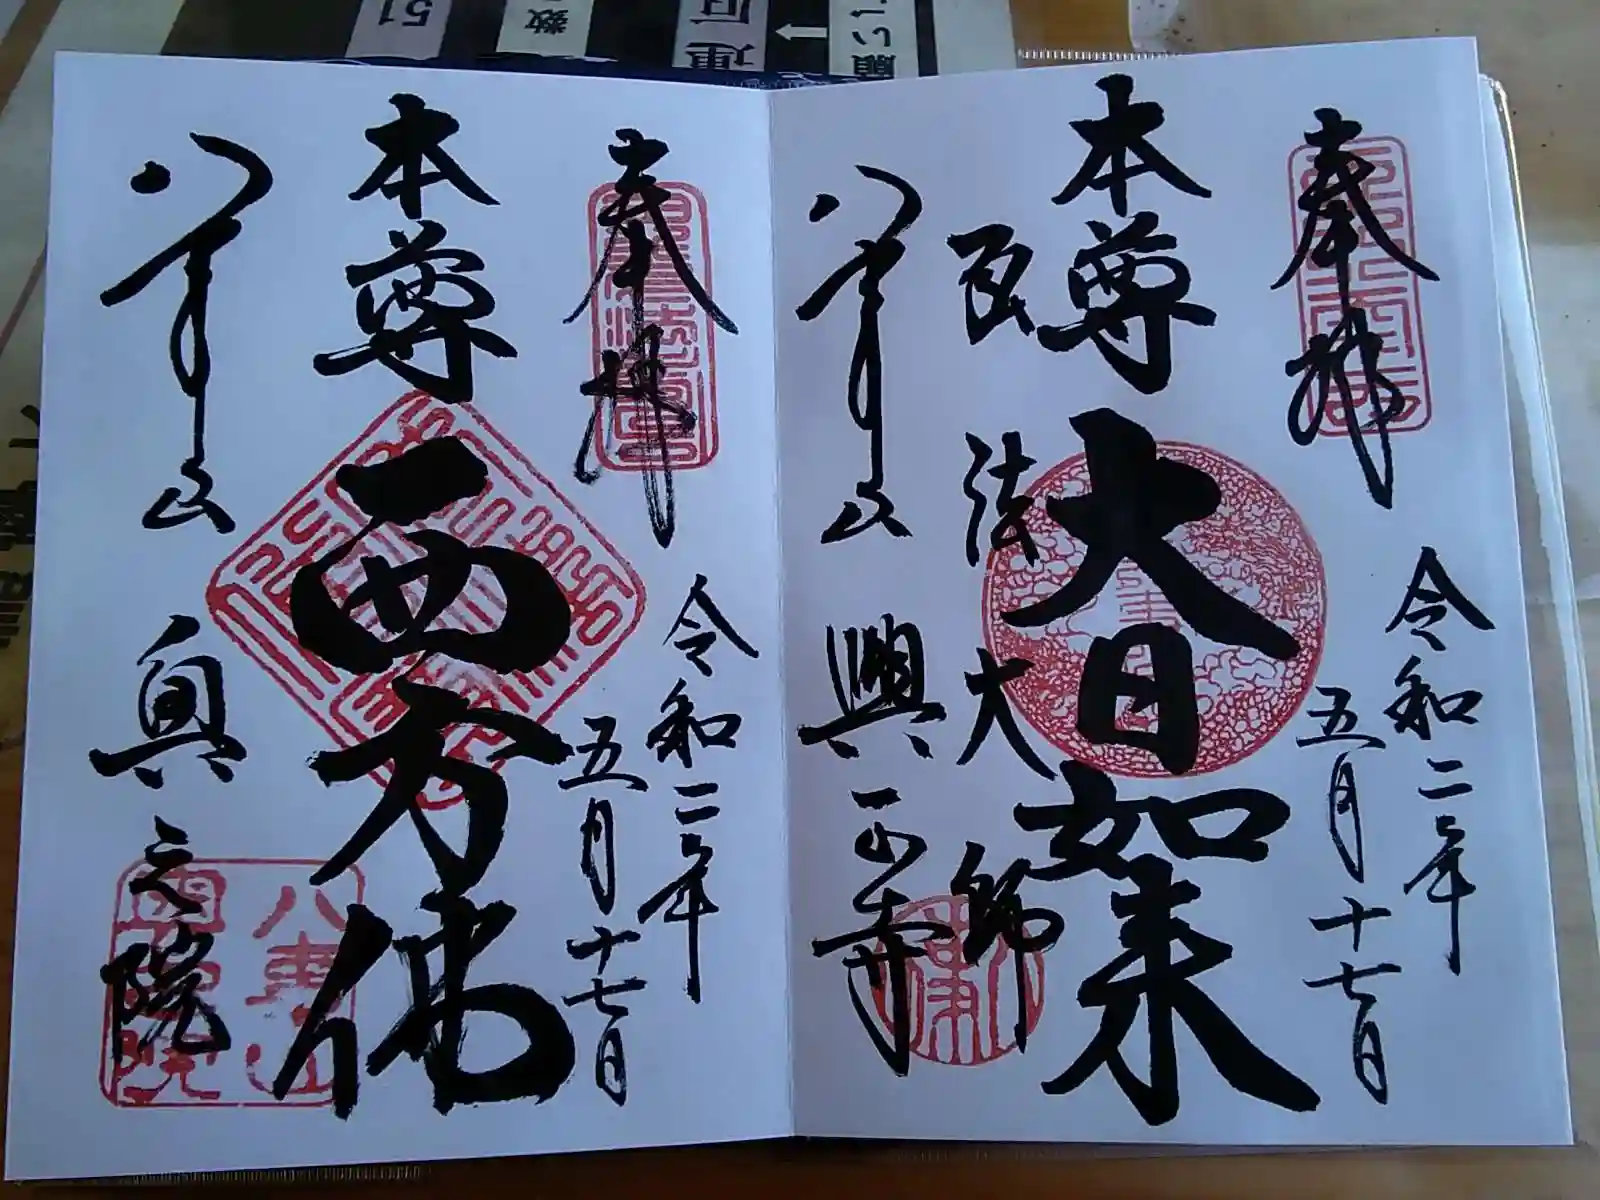 奉拝
令和二年
五月十七日
本尊 大日如来
法大師
八事山 興正寺
奉拝
令和二年
五月十七日
本尊 西方佛
八事山 奥之院
八事山
51
数
願い